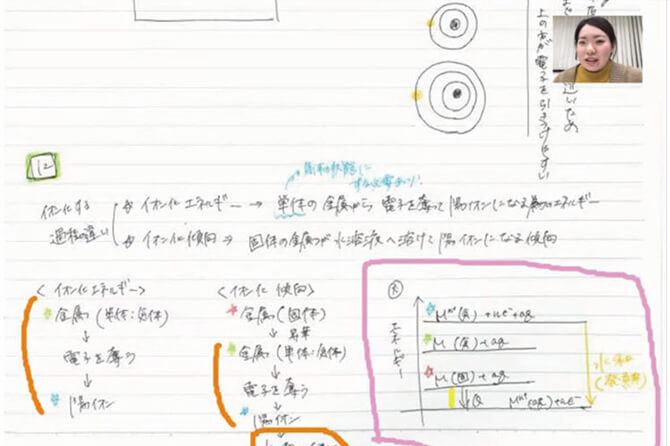 上の方が電子を引きつけやすい
12
気体の状態に
する必要あり!
イオン化する
過程の違い
イオン化エネルギー → 単体の金属から電子を奪って陽イオンになる為のエネルギー
イオン化傾向 → 固体の金属が水溶液へ溶けて陽イオンになる傾向
<イオン化エネルギー>
金属(単体:気体)
↓
電子を奪う
↓
陽イオン
<イオン化傾向>
金属(固体)
↓昇華
金属(単体:気体)
↓
電子を奪う
↓
陽イオン
エネルギー
Mⁿ⁺(気)+ne⁻+aq
M(気)+aq
M(固)+aq
Q
Mⁿ⁺(aq)+ne⁻
水和
(発熱)